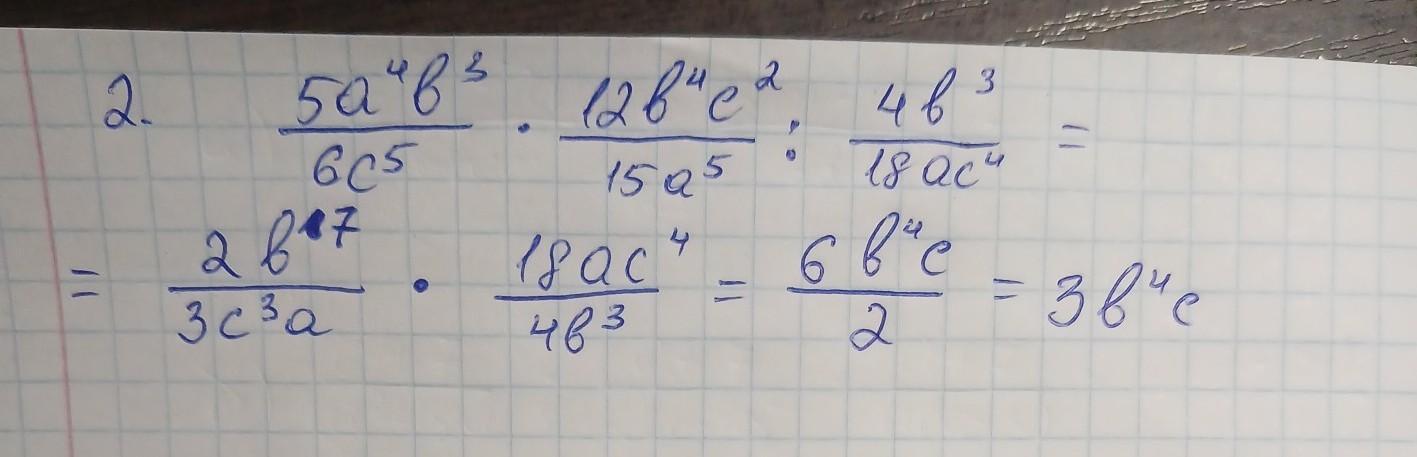 2. 5a⁴b³/6c⁵ · 12b⁴c²/15a⁵ : 4b³/18ac⁴ =
= 2b⁷/3c³a · 18ac⁴/4b³ = 6b⁴c/2 = 3b⁴c